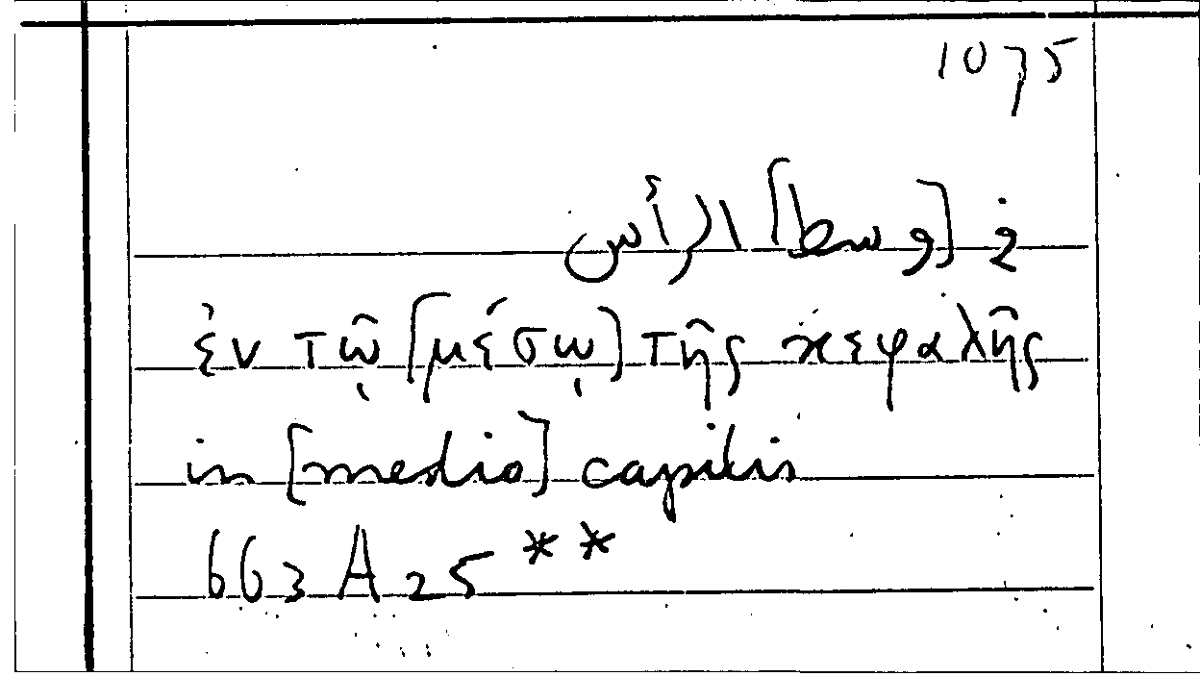 1075
في [وسط] الرأس
ἐν τῷ [μέσῳ] τῆς κεφαλῆς
in [medio] capitis
663 A 25 **